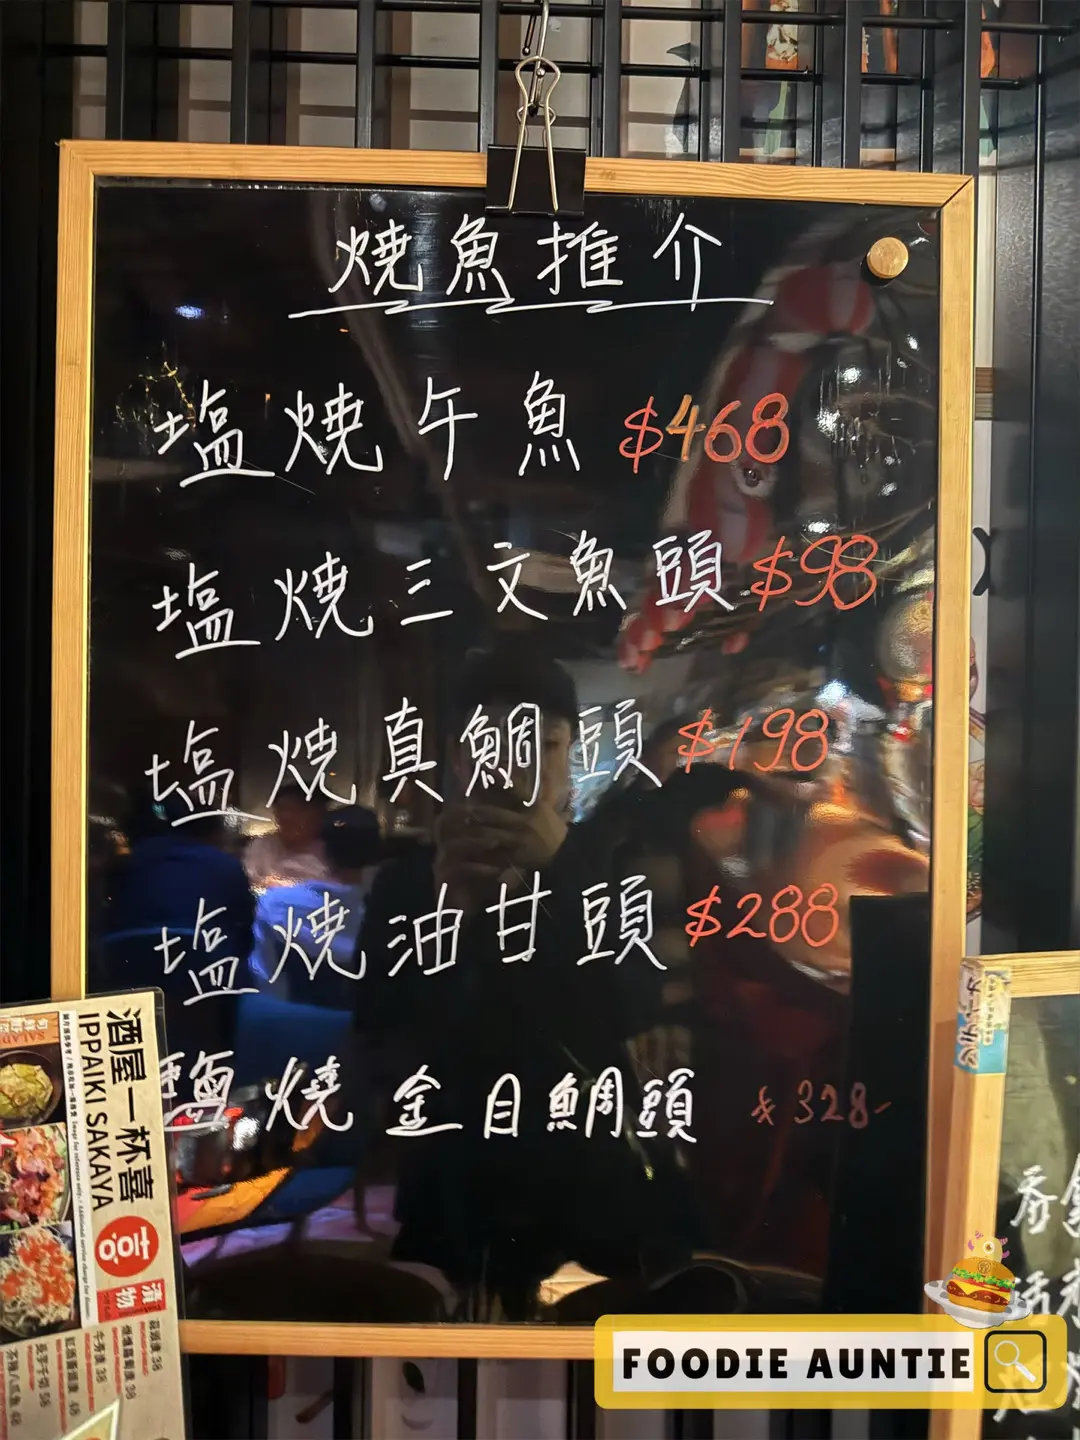 燒魚推介
塩燒午魚 $468
塩燒三文魚頭 $98
塩燒真鯛頭 $198
塩燒油甘頭 $288
鹽燒金目鯛頭 $328-
酒屋一杯喜
IPPAIKI SAKAYA
喜
漬物
SALAD
FOODIE AUNTIE